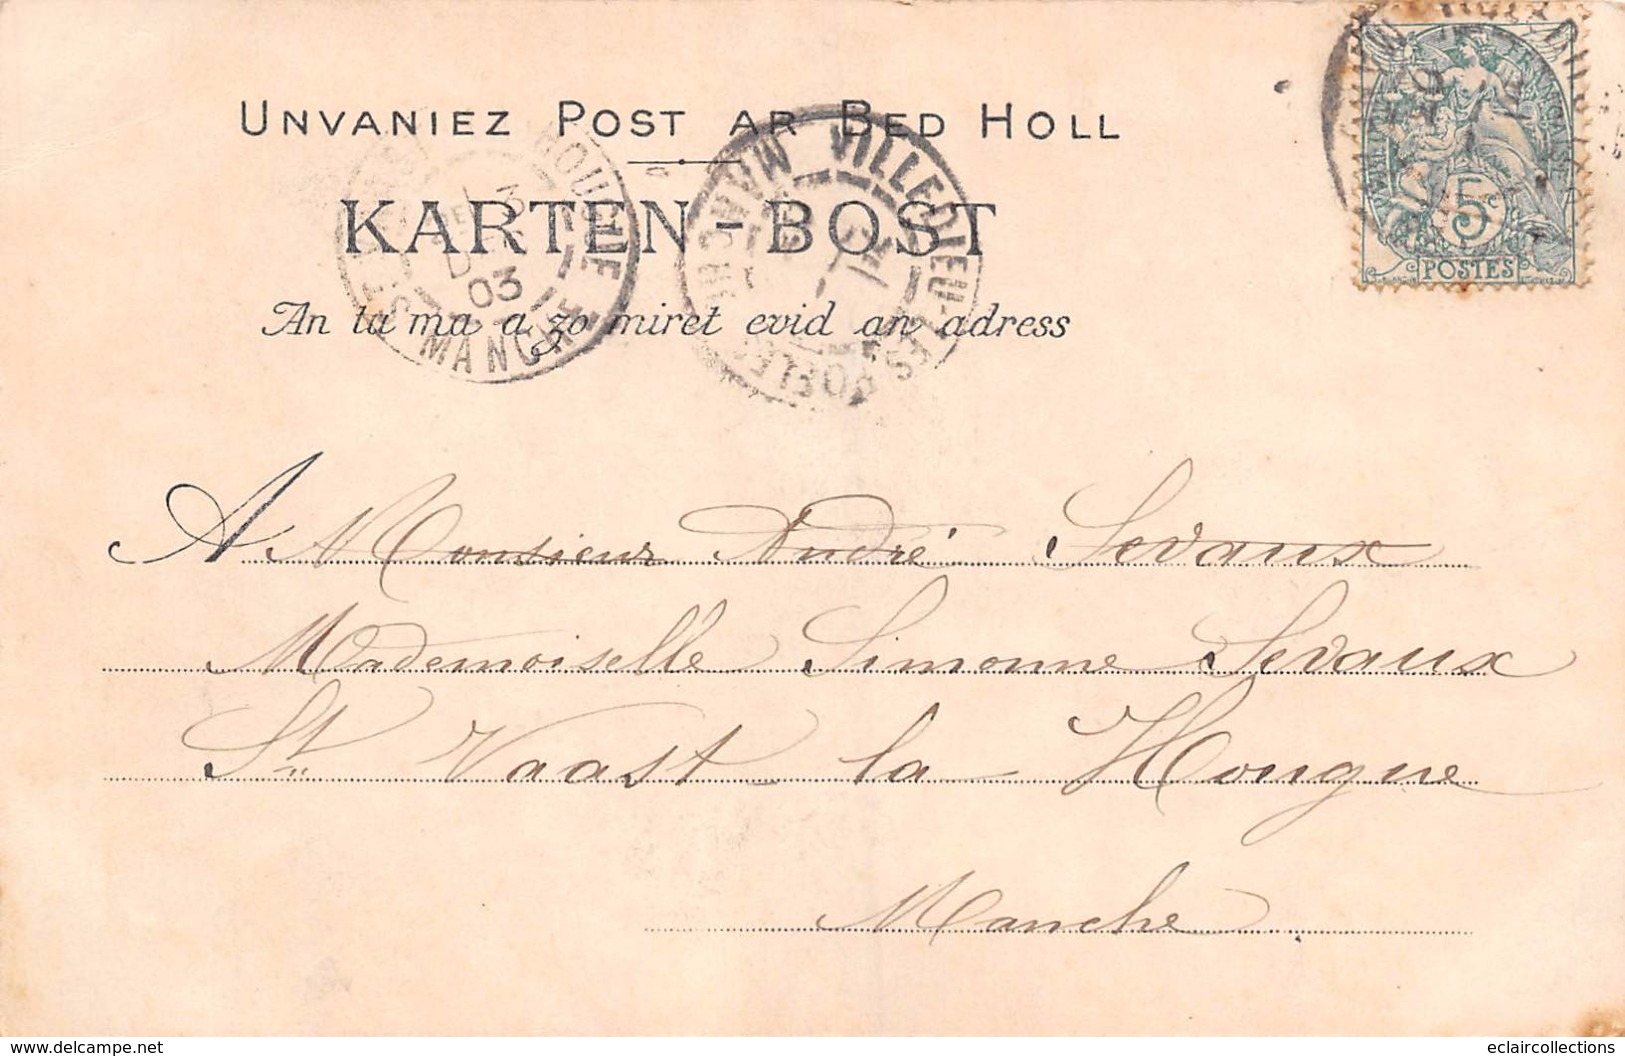 UNVANIEZ POST AR BED HOLL
KARTEN-BOST
An tu ma a zo miret evid an adress
VILLEDIEU-LES-POELES
MANCHE
03
MANCHE
5c
POSTES
A Monsieur André Sevaux
Mademoiselle Simonne Sevaux
St Vaast la Hougue
Manche
www.delcampe.net
eclaircollections